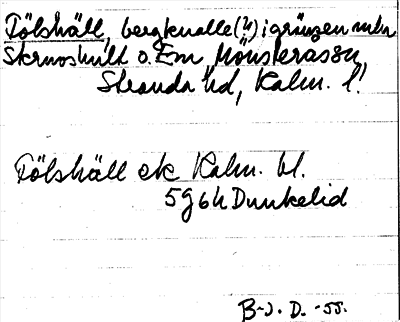 Fölshäll, bergknalle(?) i gränsen mln
Skruvshult o. Em, Mönsterås sn
Stranda hd, Kalm. l.
Fölshäll ek Kalm. bl.
5g6h Dunkelid
B-J. D. -55.